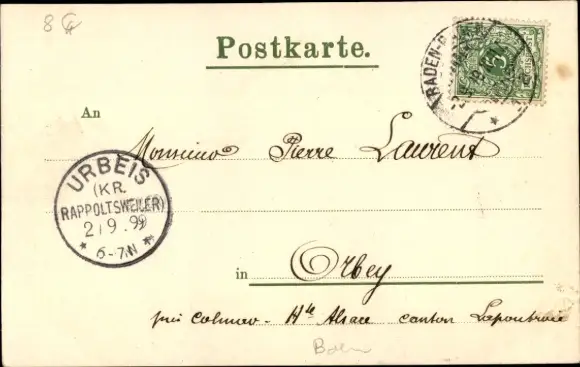 8
Postkarte.
BADEN-B
5
An
Monsieur Pierre Laurent
URBEIS
(KR.
RAPPOLTSWEILER)
2/9.99
* 6-7N *
in Orbey
près Colmar - Hte Alsace canton Lapoutroie